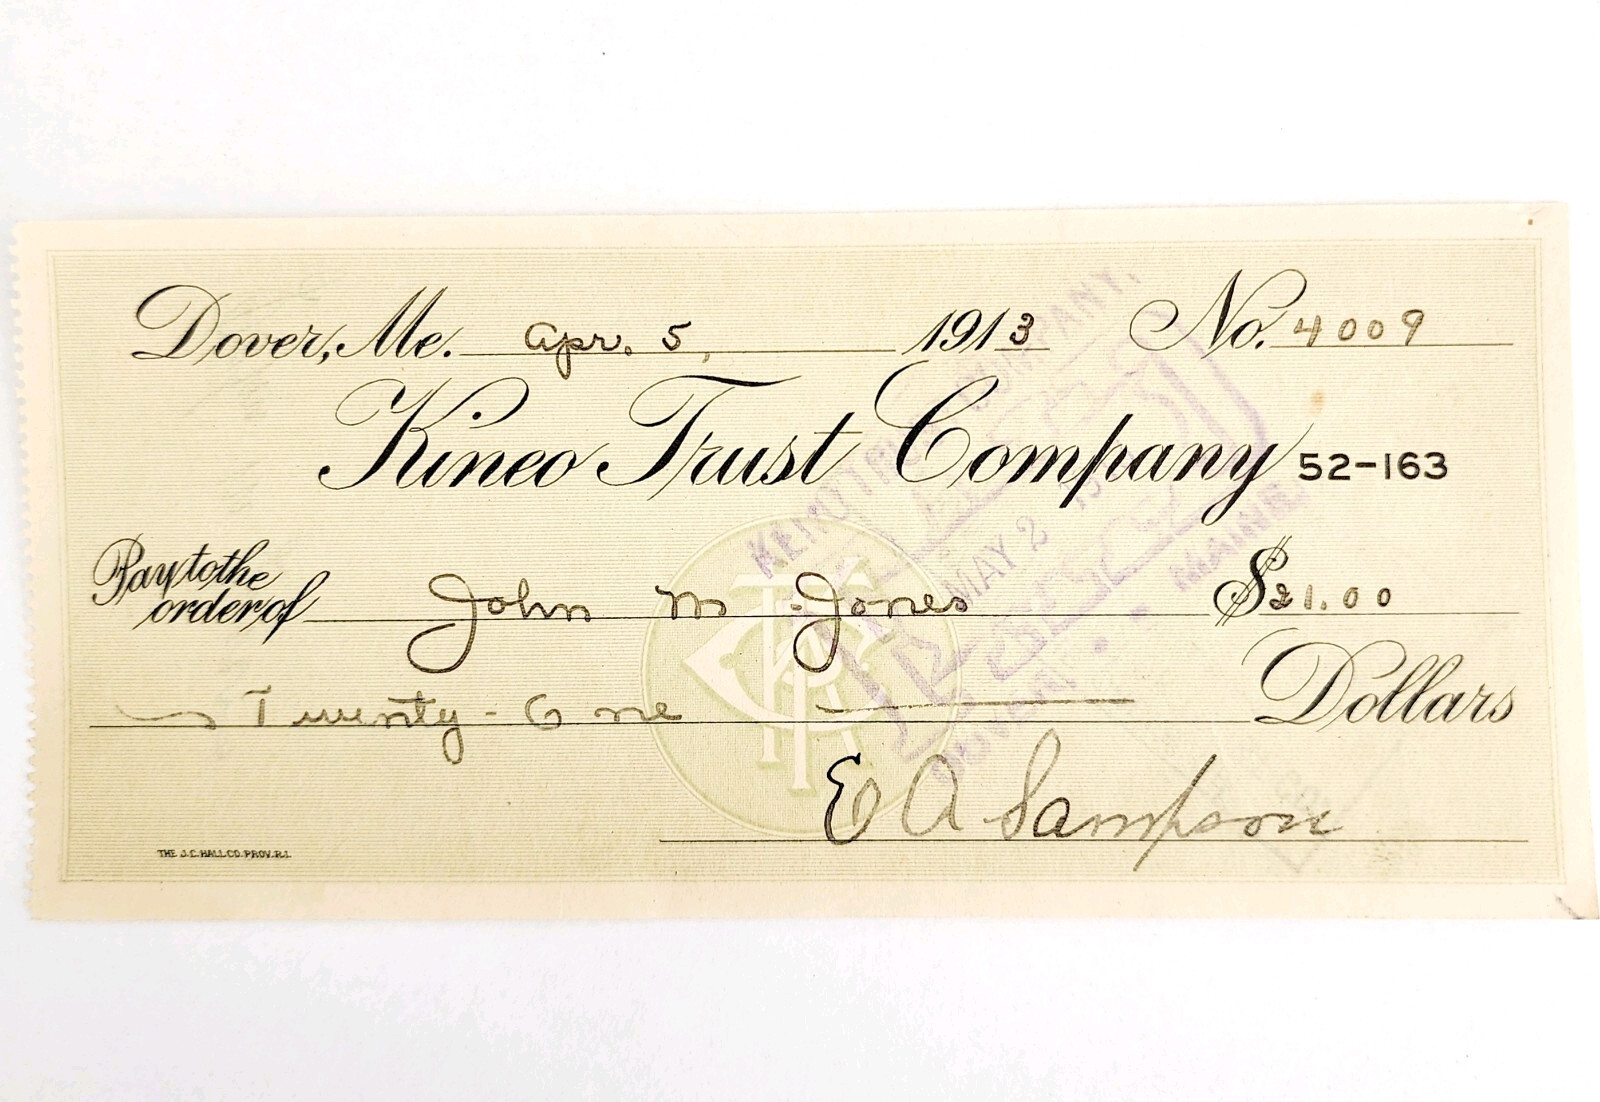 Dover, Me. Apr. 5, 1913 No. 4009
Kineo Trust Company 52-163
Pay to the order of John M. Jones $21.00
Twenty-One Dollars
E A Sampson
THE J.C. HALL CO. PROV. R.I.
TRUST COMPANY,
MAY 2
PAID
DOVER, MAINE.